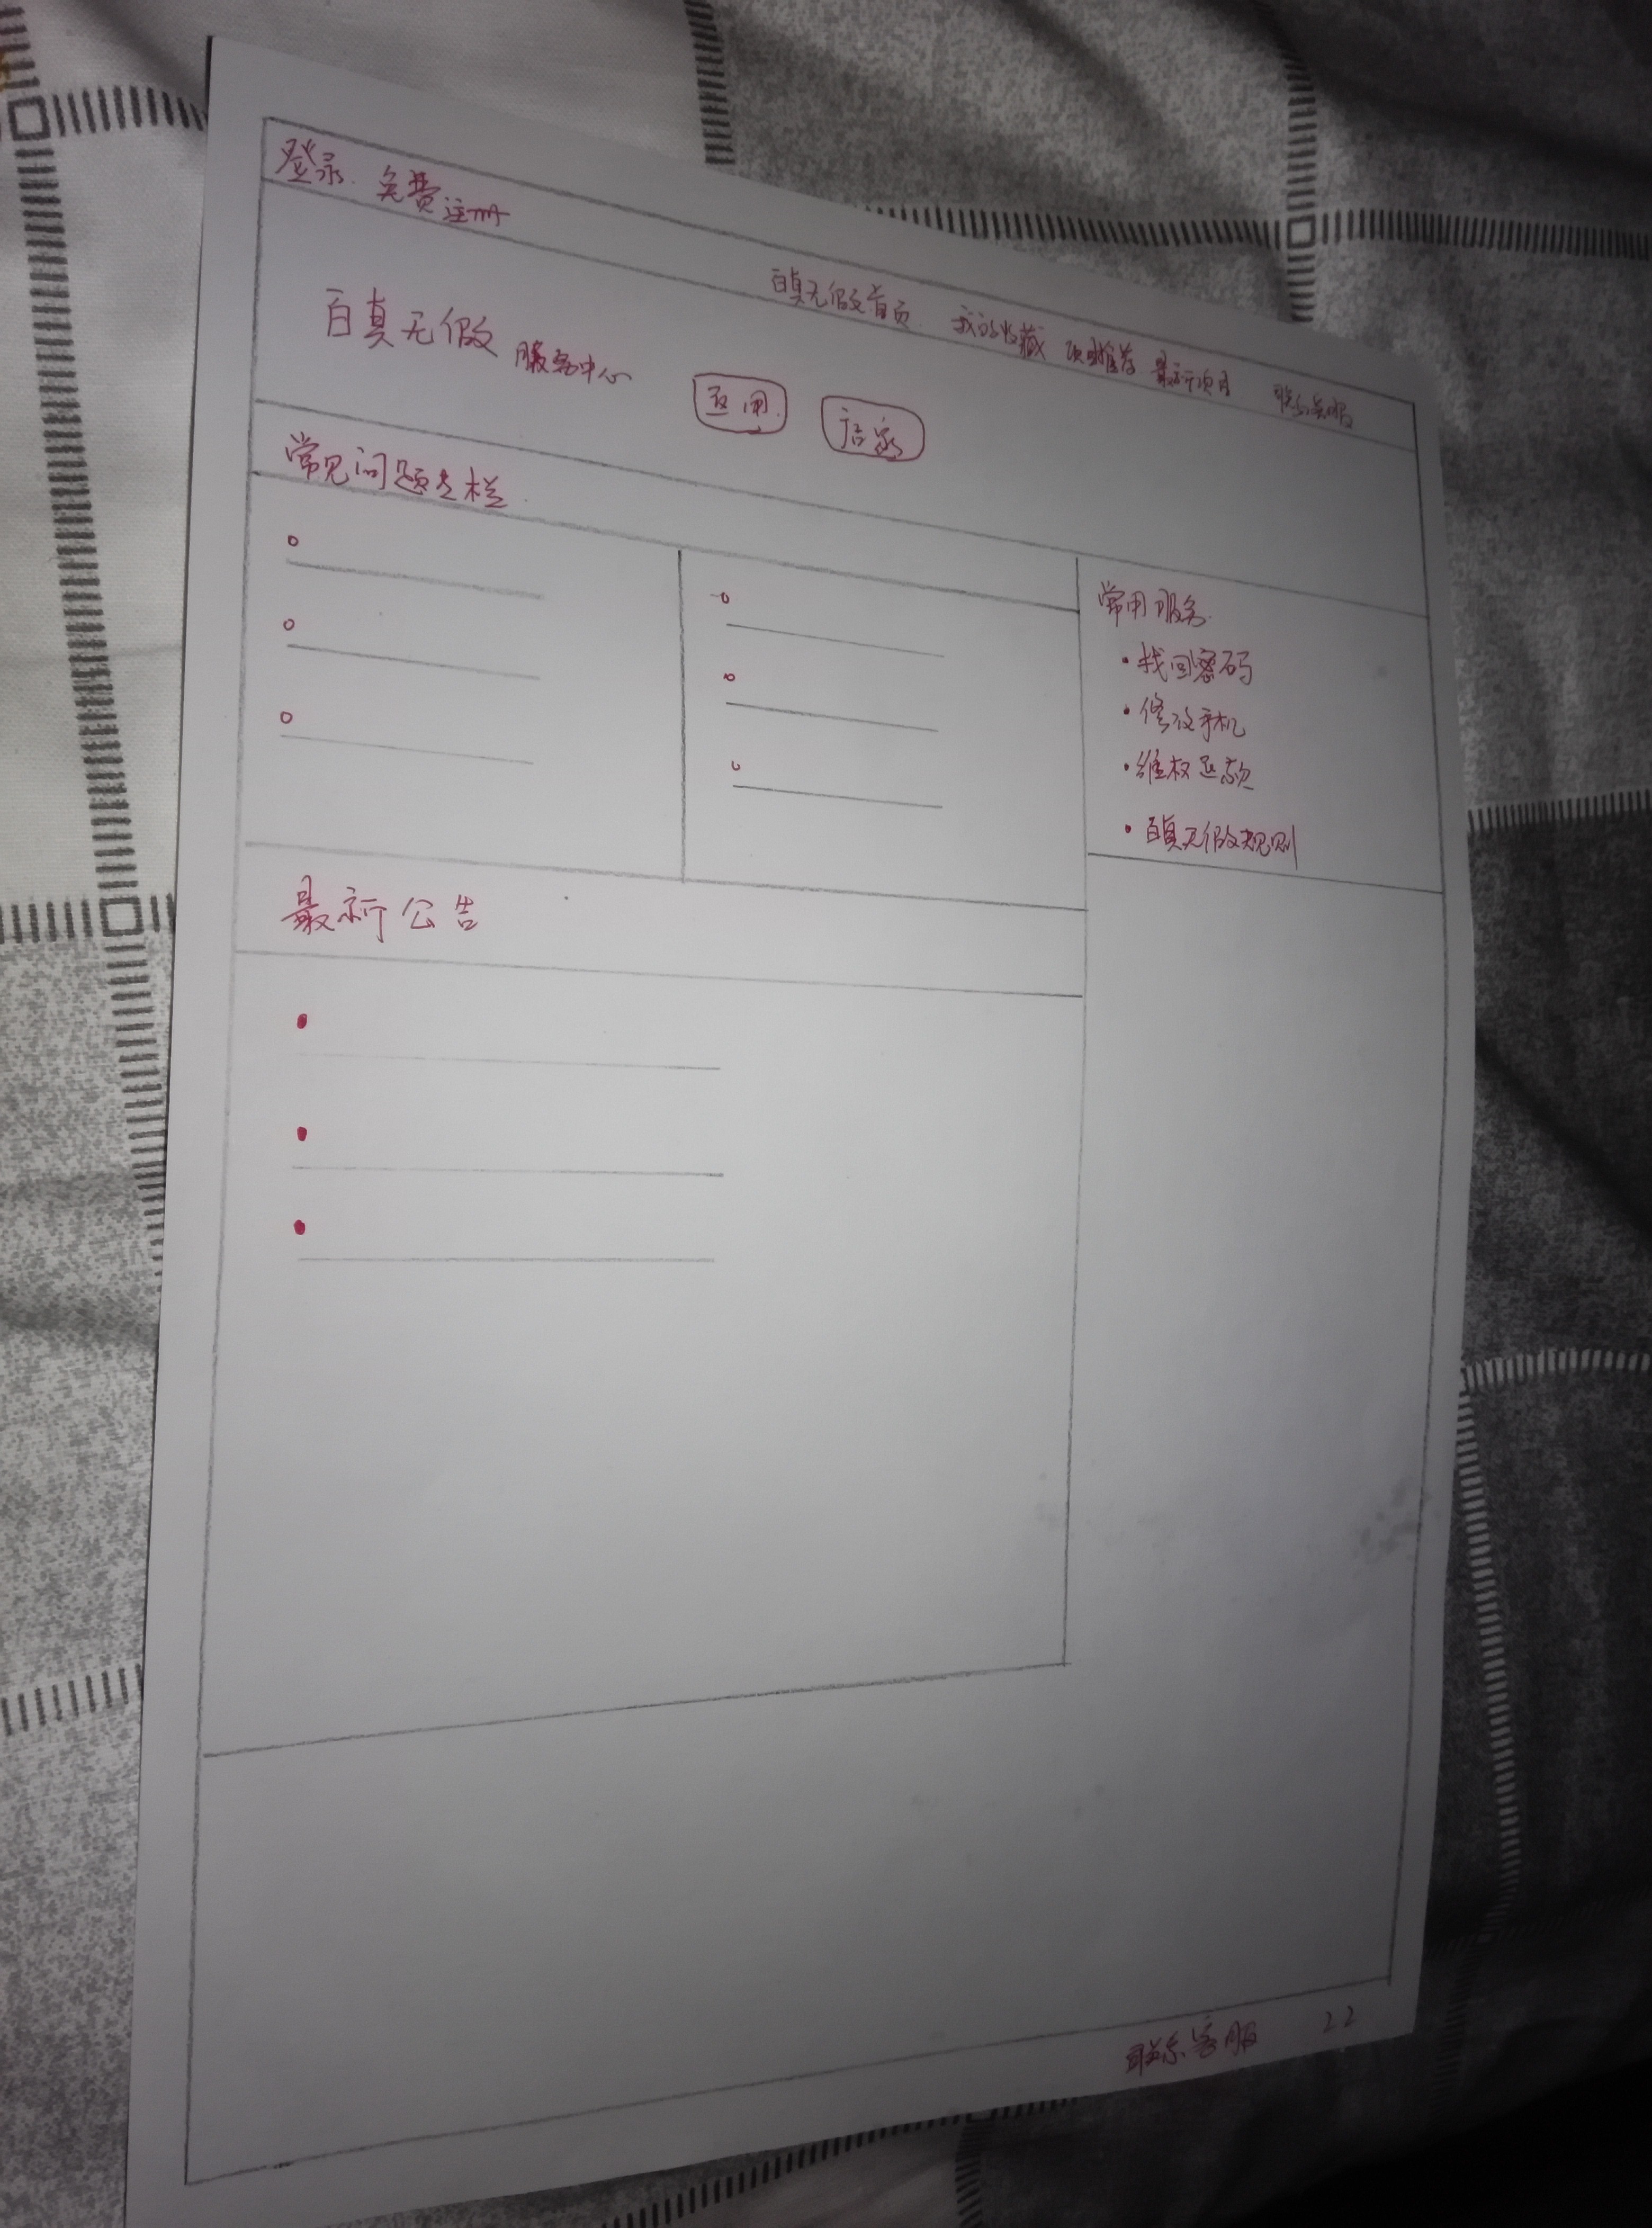 登录 免费注册
百真无假首页 我的收藏 项目推荐 最新项目 联系客服
百真无假 服务中心
常见问题专栏
常用服务
·找回密码
·修改手机
·维权退款
·百真无假规则
最新公告
联系客服 22